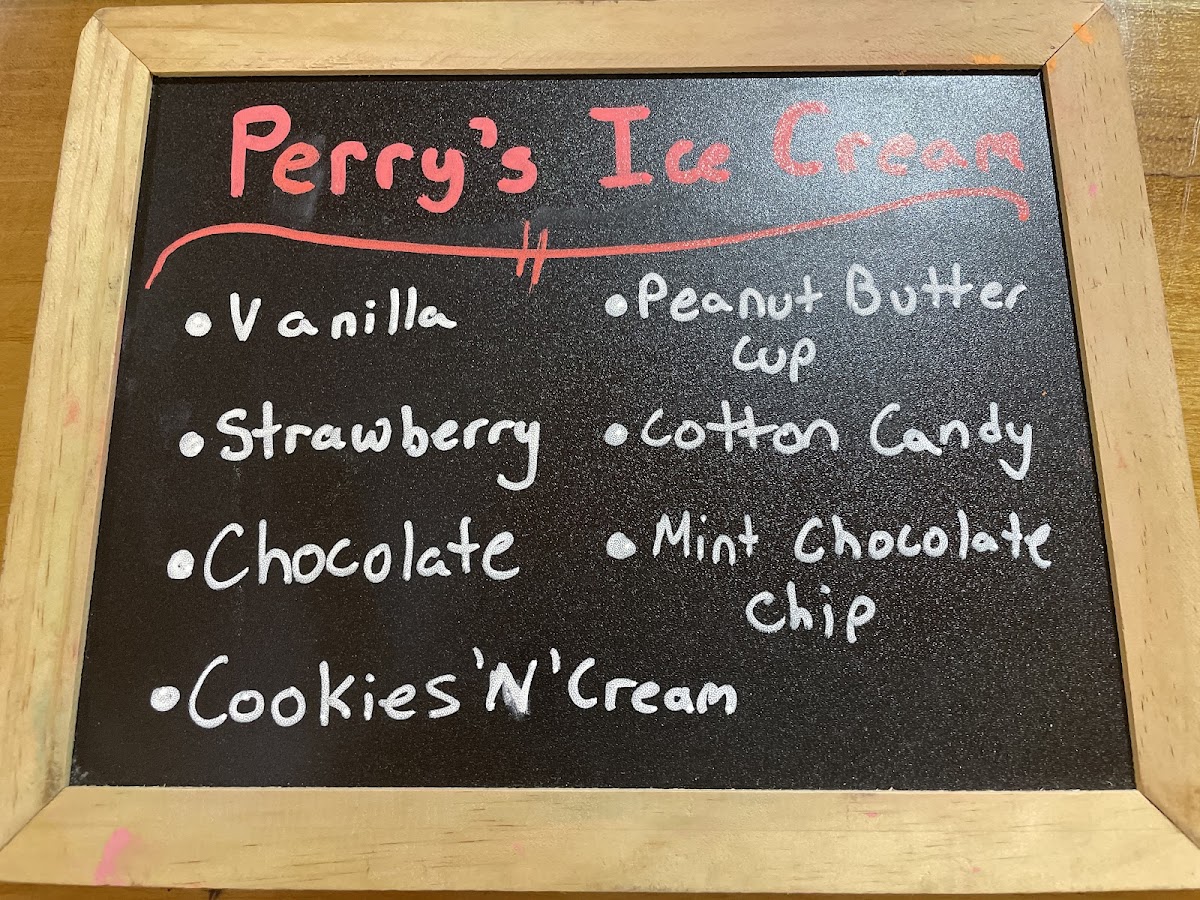 Perry's Ice Cream
•Vanilla
•Strawberry
•Chocolate
•Cookies 'N' Cream
•Peanut Butter
cup
•Cotton Candy
•Mint Chocolate
chip